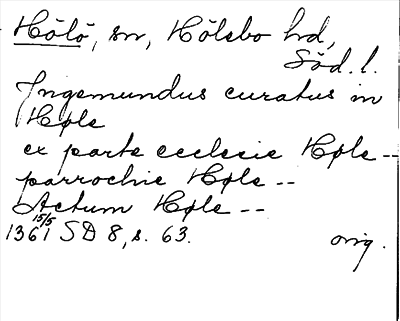 Hölö, sn, Hölebo hd,
Söd. l.
Ingemundus curatus in
Høle
ex parte ecclesie Høle --
parrochie Høle --
Actum Høle --
15/5
1361 SD 8, s. 63. orig.